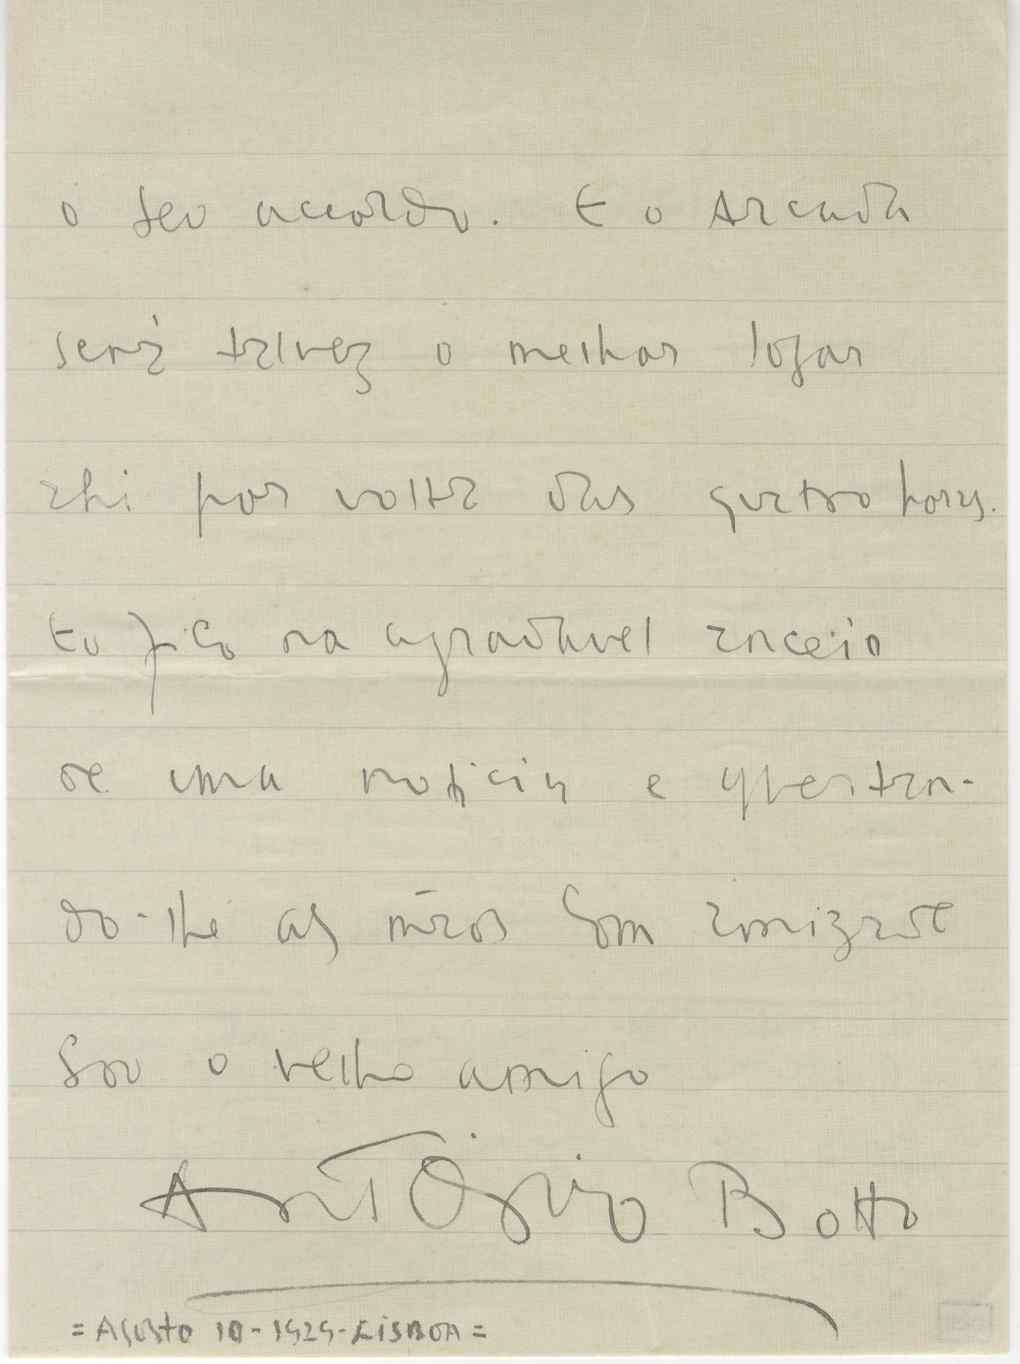 o seu accordo. E o Arcada
será talvez o melhor logar
ahi por volta das quatro horas.
Eu fico na agradavel anceio
de uma noticia e apertan-
do-lhe as mãos com amizade
Sou o velho amigo
António Botto
= Agosto 10-1929-LISBOA =